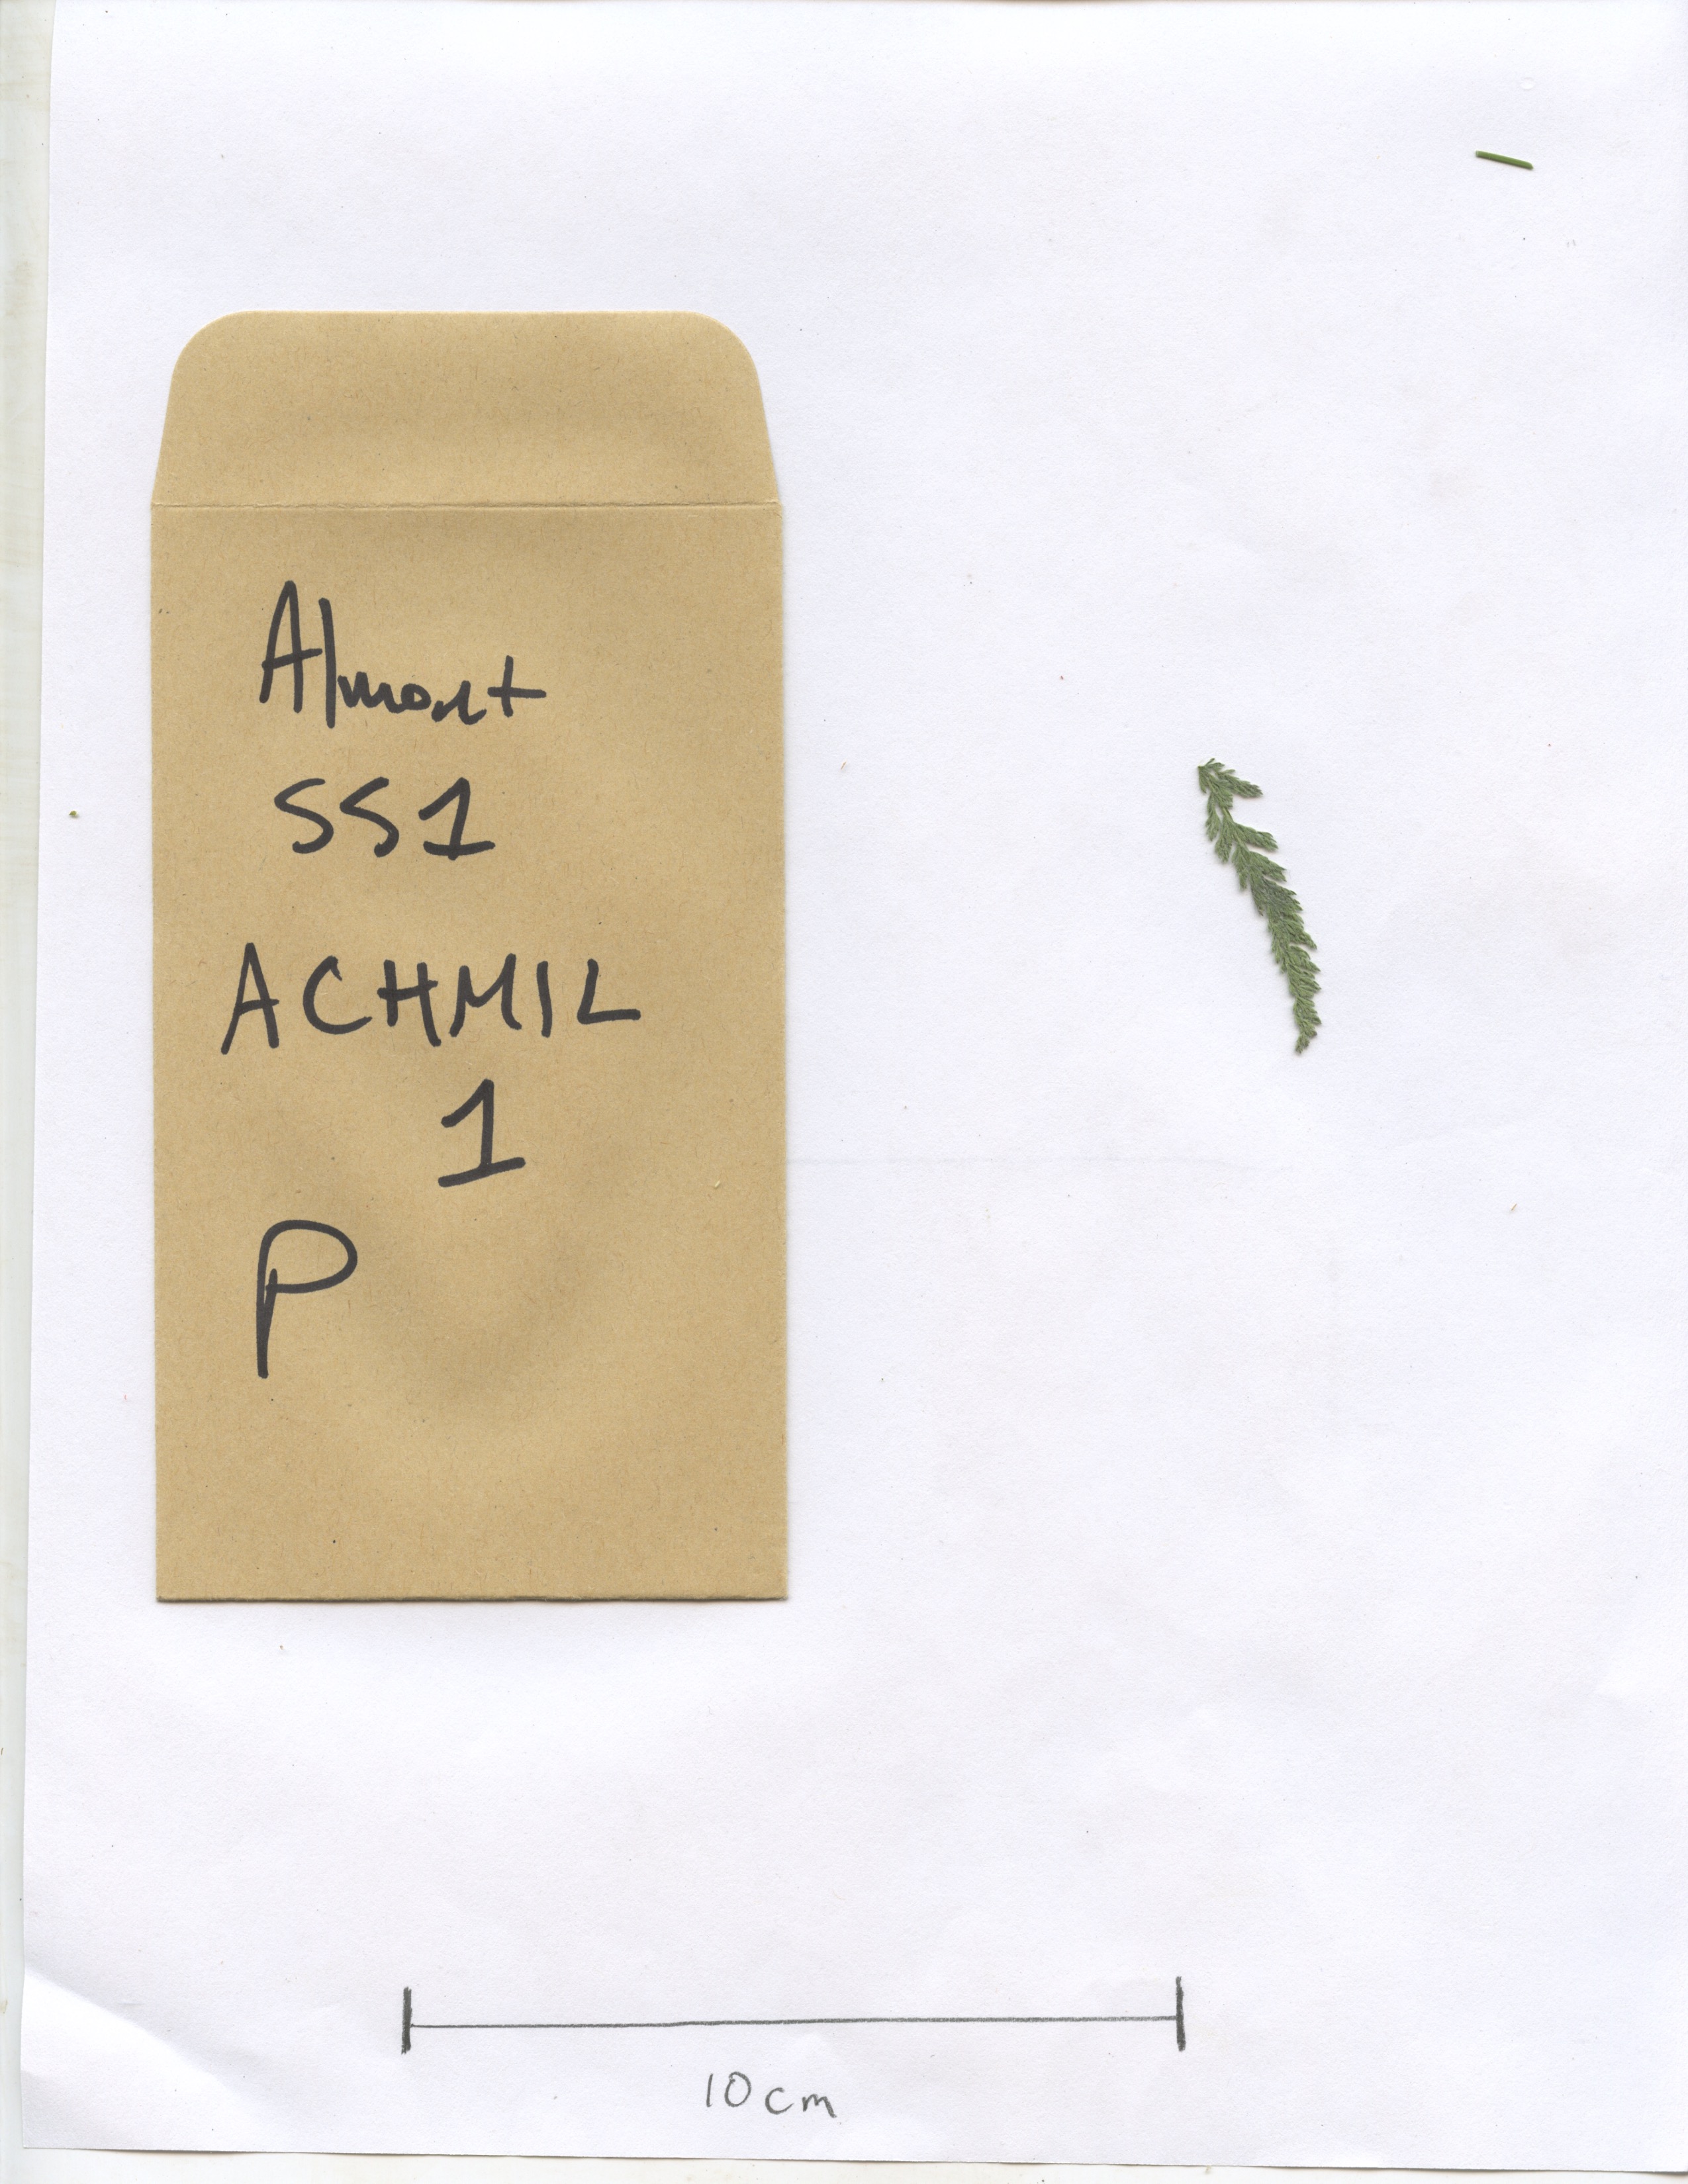 Almont
SS1
ACHMIL
1
P
10cm